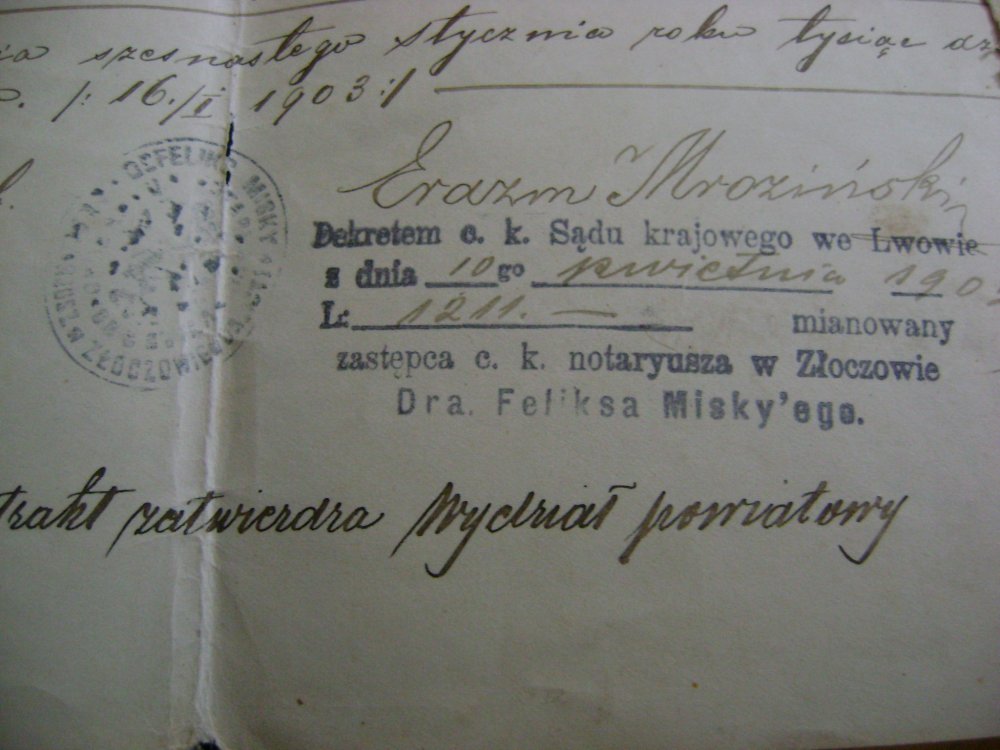 szesnastego stycznia roku tysiąc
/: 16./I 1903 :/
Erazm Mroziński
Dekretem c. k. Sądu krajowego we Lwowie
z dnia 10go kwietnia 190
L: 1211. —
mianowany
zastępca c. k. notaryusza w Złoczowie
Dra. Feliksa Misky'ego.
zatwierdza Wydział powiatowy
FELIKS MISKY